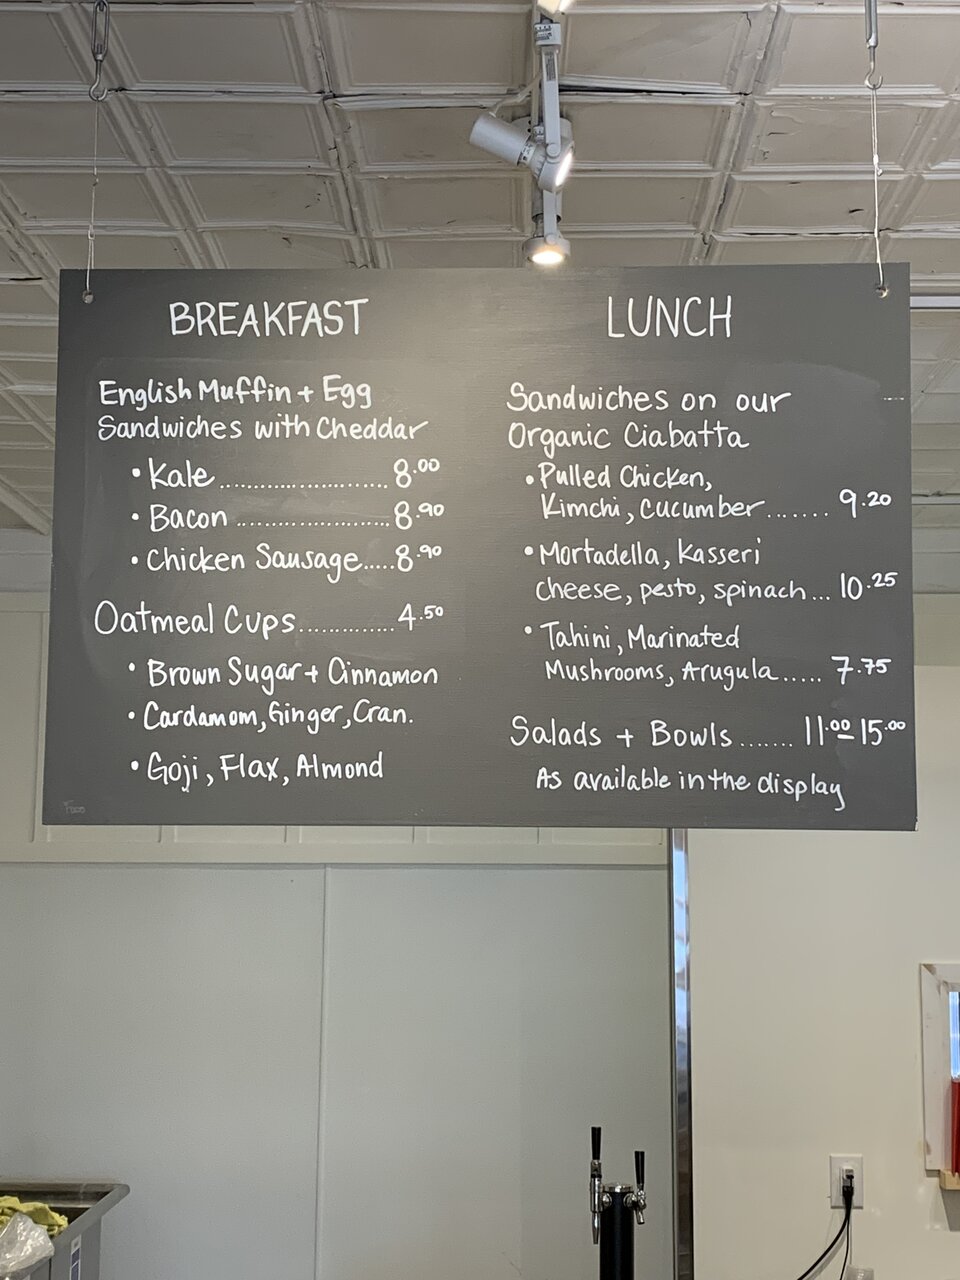 BREAKFAST
English Muffin + Egg
Sandwiches with Cheddar
• Kale ........................ 8.00
• Bacon ........................ 8.90
• Chicken Sausage.....8.90
Oatmeal Cups.............. 4.50
• Brown Sugar + Cinnamon
• Cardamom, Ginger, Cran.
• Goji, Flax, Almond
Food
LUNCH
Sandwiches on our
Organic Ciabatta
• Pulled Chicken,
Kimchi, cucumber....... 9.20
• Mortadella, Kasseri
cheese, pesto, spinach... 10.25
• Tahini, Marinated
Mushrooms, Arugula..... 7.75
Salads + Bowls....... 11.00-15.00
As available in the display